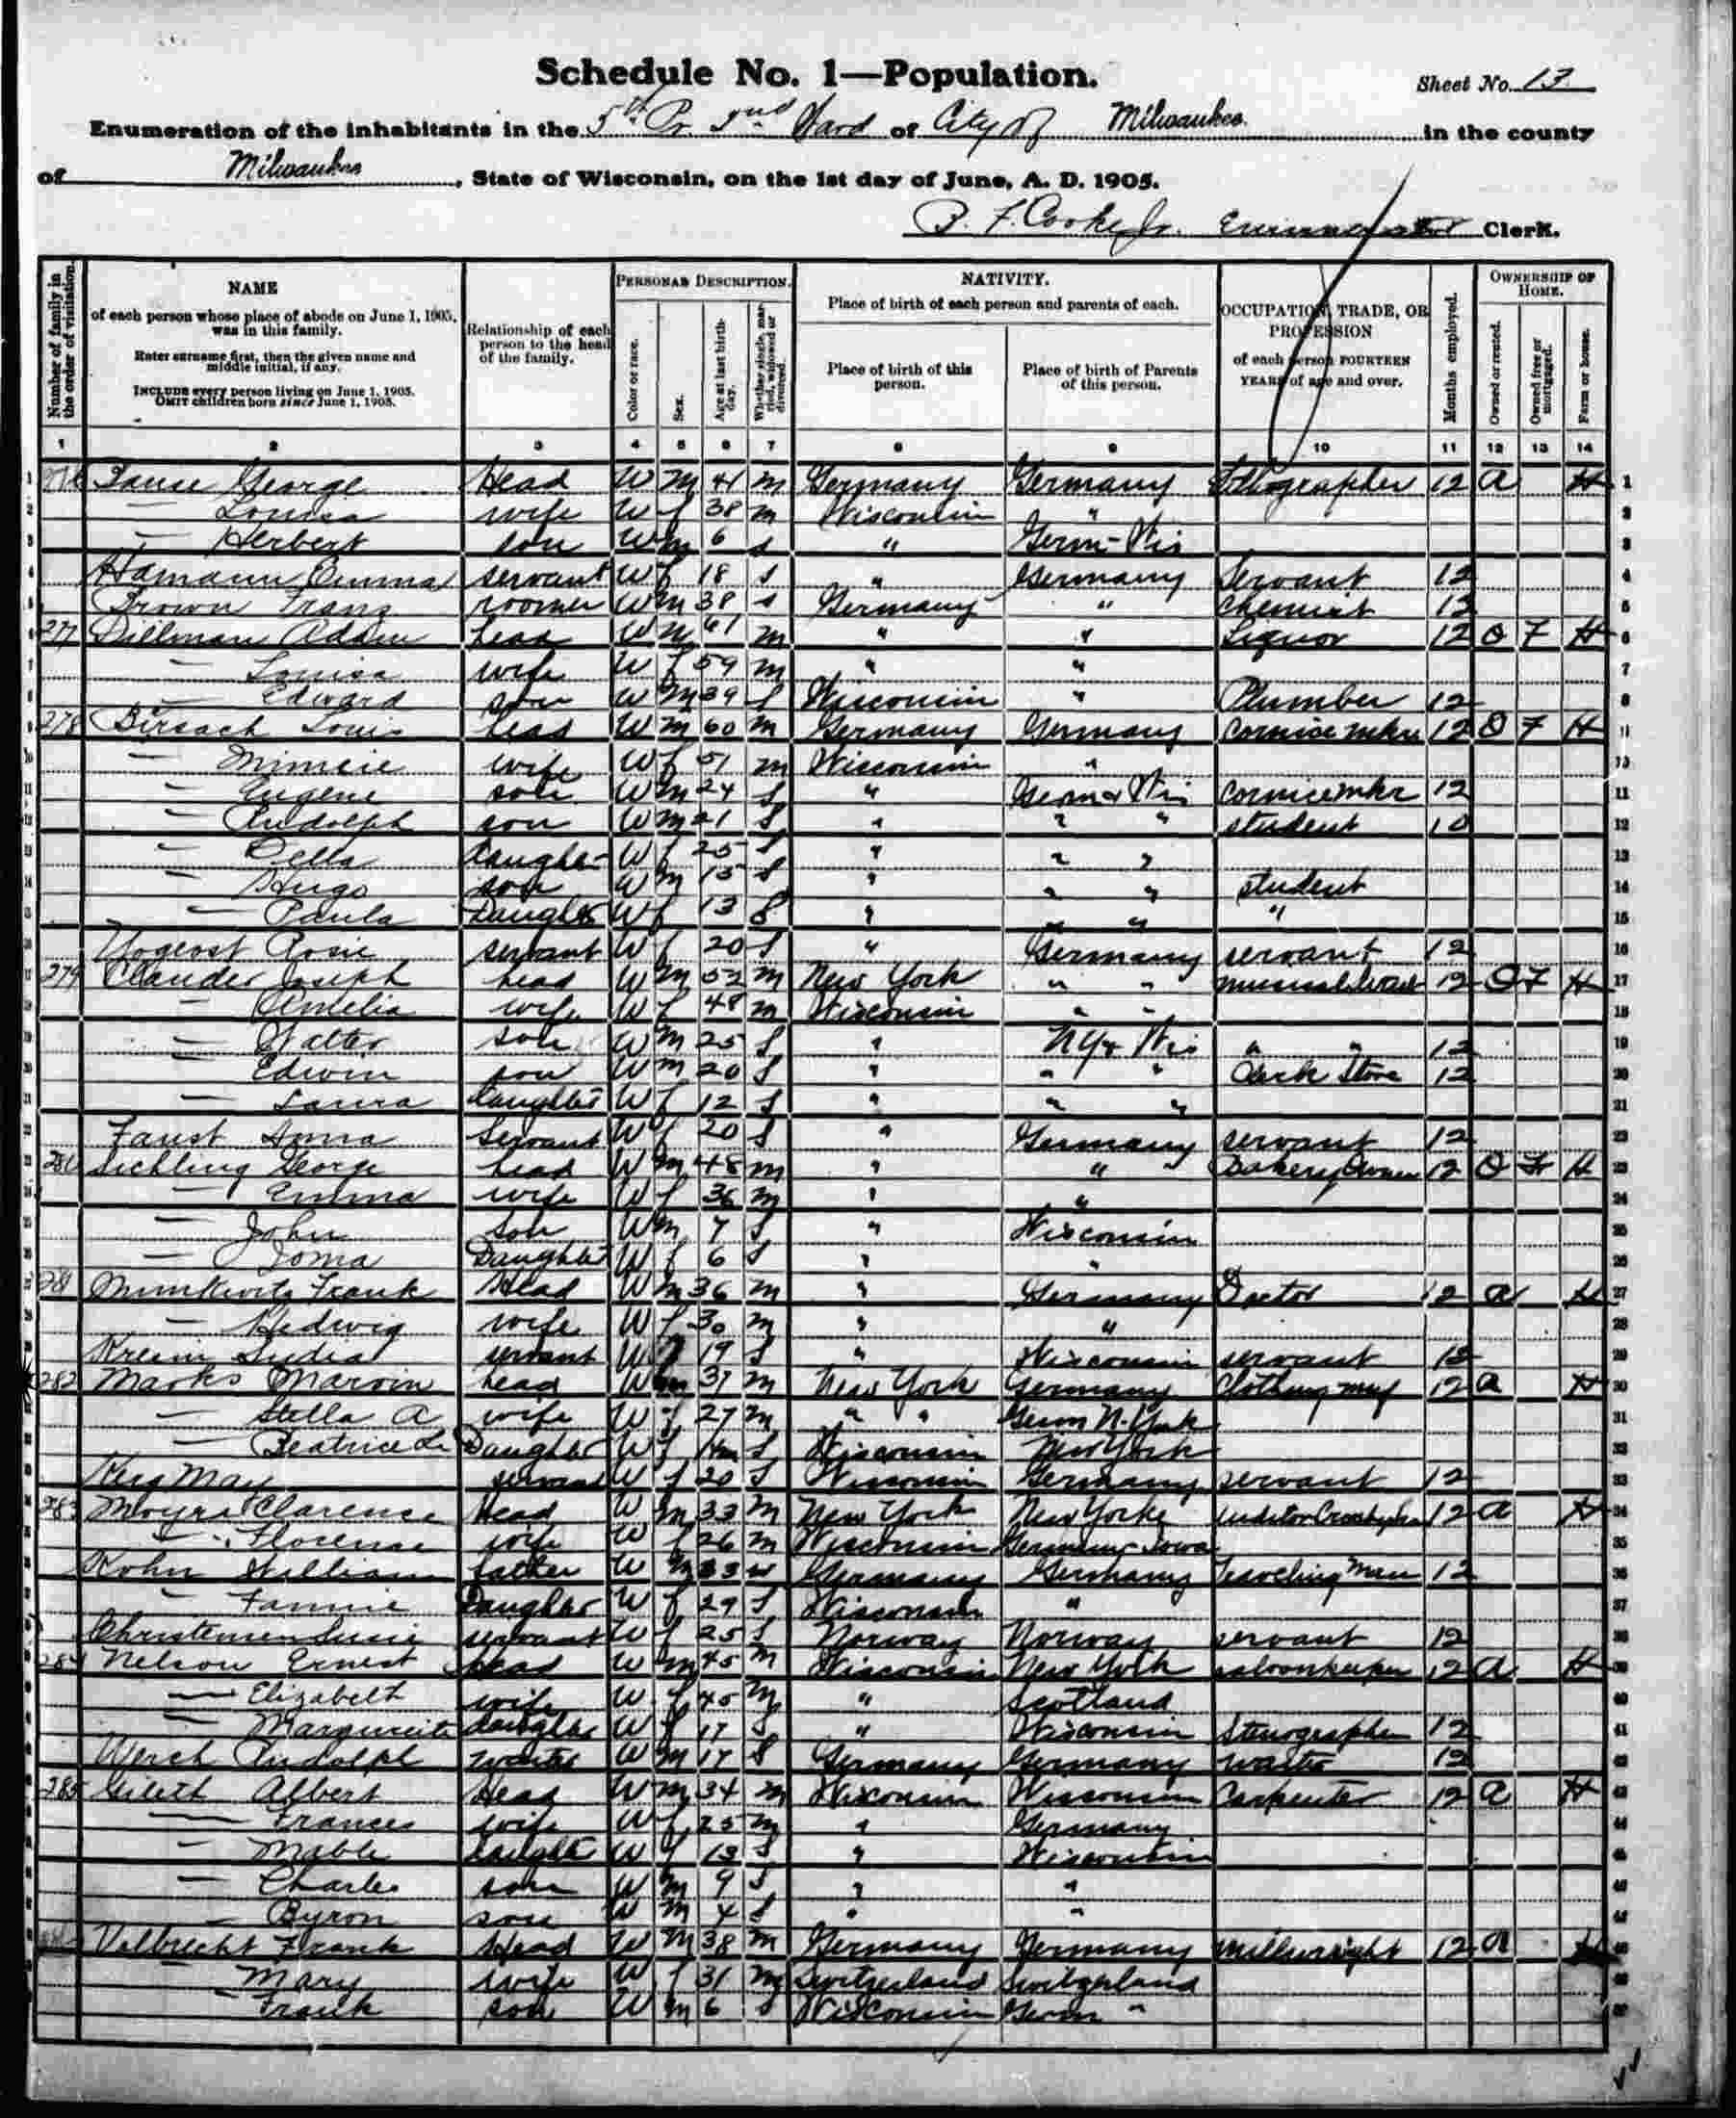 Schedule No. 1—Population.
Sheet No. 13
Enumeration of the inhabitants in the 5th Pr 2nd Ward of City of Milwaukee in the county
of Milwaukee, State of Wisconsin, on the 1st day of June, A. D. 1905.
B. F. Cooke Jr. Enumerator Clerk.
Number of family in the order of visitation.
NAME
of each person whose place of abode on June 1, 1905, was in this family.
Enter surname first, then the given name and middle initial, if any.
INCLUDE every person living on June 1, 1905.
OMIT children born since June 1, 1905.
Relationship of each person to the head of the family.
PERSONAL DESCRIPTION.
Color or race.
Sex.
Age at last birthday.
Whether single, married, widowed or divorced.
NATIVITY.
Place of birth of each person and parents of each.
Place of birth of this person.
Place of birth of Parents of this person.
OCCUPATION, TRADE, OR PROFESSION
of each person FOURTEEN YEARS of age and over.
Months employed.
OWNERSHIP OF HOME.
Owned or rented.
Owned free or mortgaged.
Farm or house.
1 2 3 4 5 6 7 8 9 10 11 12 13 14
276 George Head W M 41 M Germany Germany Lithographer 12 R H
— Louisa wife W f 38 M Wisconsin "
— Herbert son W M 6 S " Germ-Wis
Hamann Emma servant W f 18 S " Germany Servant 12
Brown Franz roomer W M 38 S Germany " Chemist 12
277 Dillman Adam head W M 61 M " " Liquor 12 O F H
— Louisa wife W f 59 M " "
— Edward son W M 39 S Wisconsin " Plumber 12
278 Birsach Louis head W M 60 M Germany Germany Cornice mkr 12 O F H
— Minnie wife W f 51 M Wisconsin "
— Eugene son W M 24 S " Germ & Wis Cornice mkr 12
— Rudolph son W M 21 S " " " student 10
— Della Daughter W f 25 S " " "
— Hugo son W M 15 S " " " student
— Paula Daughter W f 13 S " " " "
Rosie servant W f 20 S " Germany servant 12
279 Clauder Joseph head W M 52 M New York " " 12 O F H
— Amelia wife W f 48 M Wisconsin " "
— Walter son W M 25 S " NY & Wis " " 12
— Edwin son W M 20 S " " " Clerk Store 12
— Laura Daughter W f 12 S " " "
Faust Anna Servant W f 20 S " Germany servant 12
280 Sichling George head W M 48 M " " " Bakery Owner 12 O F H
— Emma wife W f 36 M " "
— John son W M 7 S " Wisconsin
— Joma Daughter W f 6 S " "
281 Munkwitz Frank Head W M 36 M " Germany Doctor 12 R H
— Hedwig wife W f 30 M " "
Lydia servant W f 19 S " Wisconsin servant 12
282 Marks Marvin head W M 37 M New York Germany Clothing mnf 12 R H
— Stella A wife W f 27 M " " Germ N. York
— Beatrice Daughter W f S Wisconsin New York
May servant W f 20 S Wisconsin Germany servant 12
283 Clarence Head W M 33 M New York New York 12 R H
— Florence wife W f 26 M Wisconsin Germany-Iowa
Kohn William father W M W Germany Germany Traveling Man 12
— Fannie Daughter W f 29 S Wisconsin "
Christensen Susie servant W f 25 S Norway Norway servant 12
284 Nelson Ernest head W M 45 M Wisconsin New York saloonkeeper 12 R H
— Elizabeth wife W f 45 M " Scotland
— Marguerite daughter W f 17 S " Wisconsin Stenographer 12
Werch Rudolph waiter W M 17 S Germany Germany waiter 12
285 Albert Head W M 34 M Wisconsin Wisconsin Carpenter 12 R H
— Frances wife W f 25 M " Germany
— Mable daughter W f 13 S " Wisconsin
— Charles son W M 9 S " "
— Byron son W M 4 S " "
Vilbrecht Frank Head W M 38 M Germany Germany Millwright 12 R H
— Mary wife W f 31 M Switzerland Switzerland
— Frank son W M 6 S Wisconsin Germ "